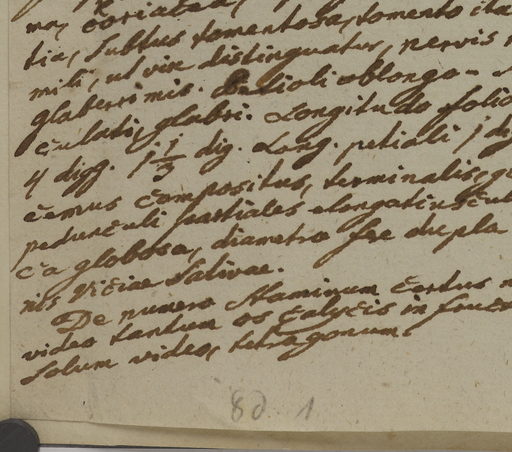 ma, coriacea,
tia, subtus tomentosa, tomento ita
mili, ut vix distinguatur, nervis
glaberrimis. Petioli oblongo-
culati, glabri. Longitudo folio
4 digg. 1 1/3 dig. Long. petioli 1 dig
cemus compositus, terminalis,
pedunculi partiales elongatiuscul
ca globosa, diametro fere dupla
nis Viciae sativae.
De numero Staminum certus
video tantum os calycis in
solum video, tetragonum.
8d. 1